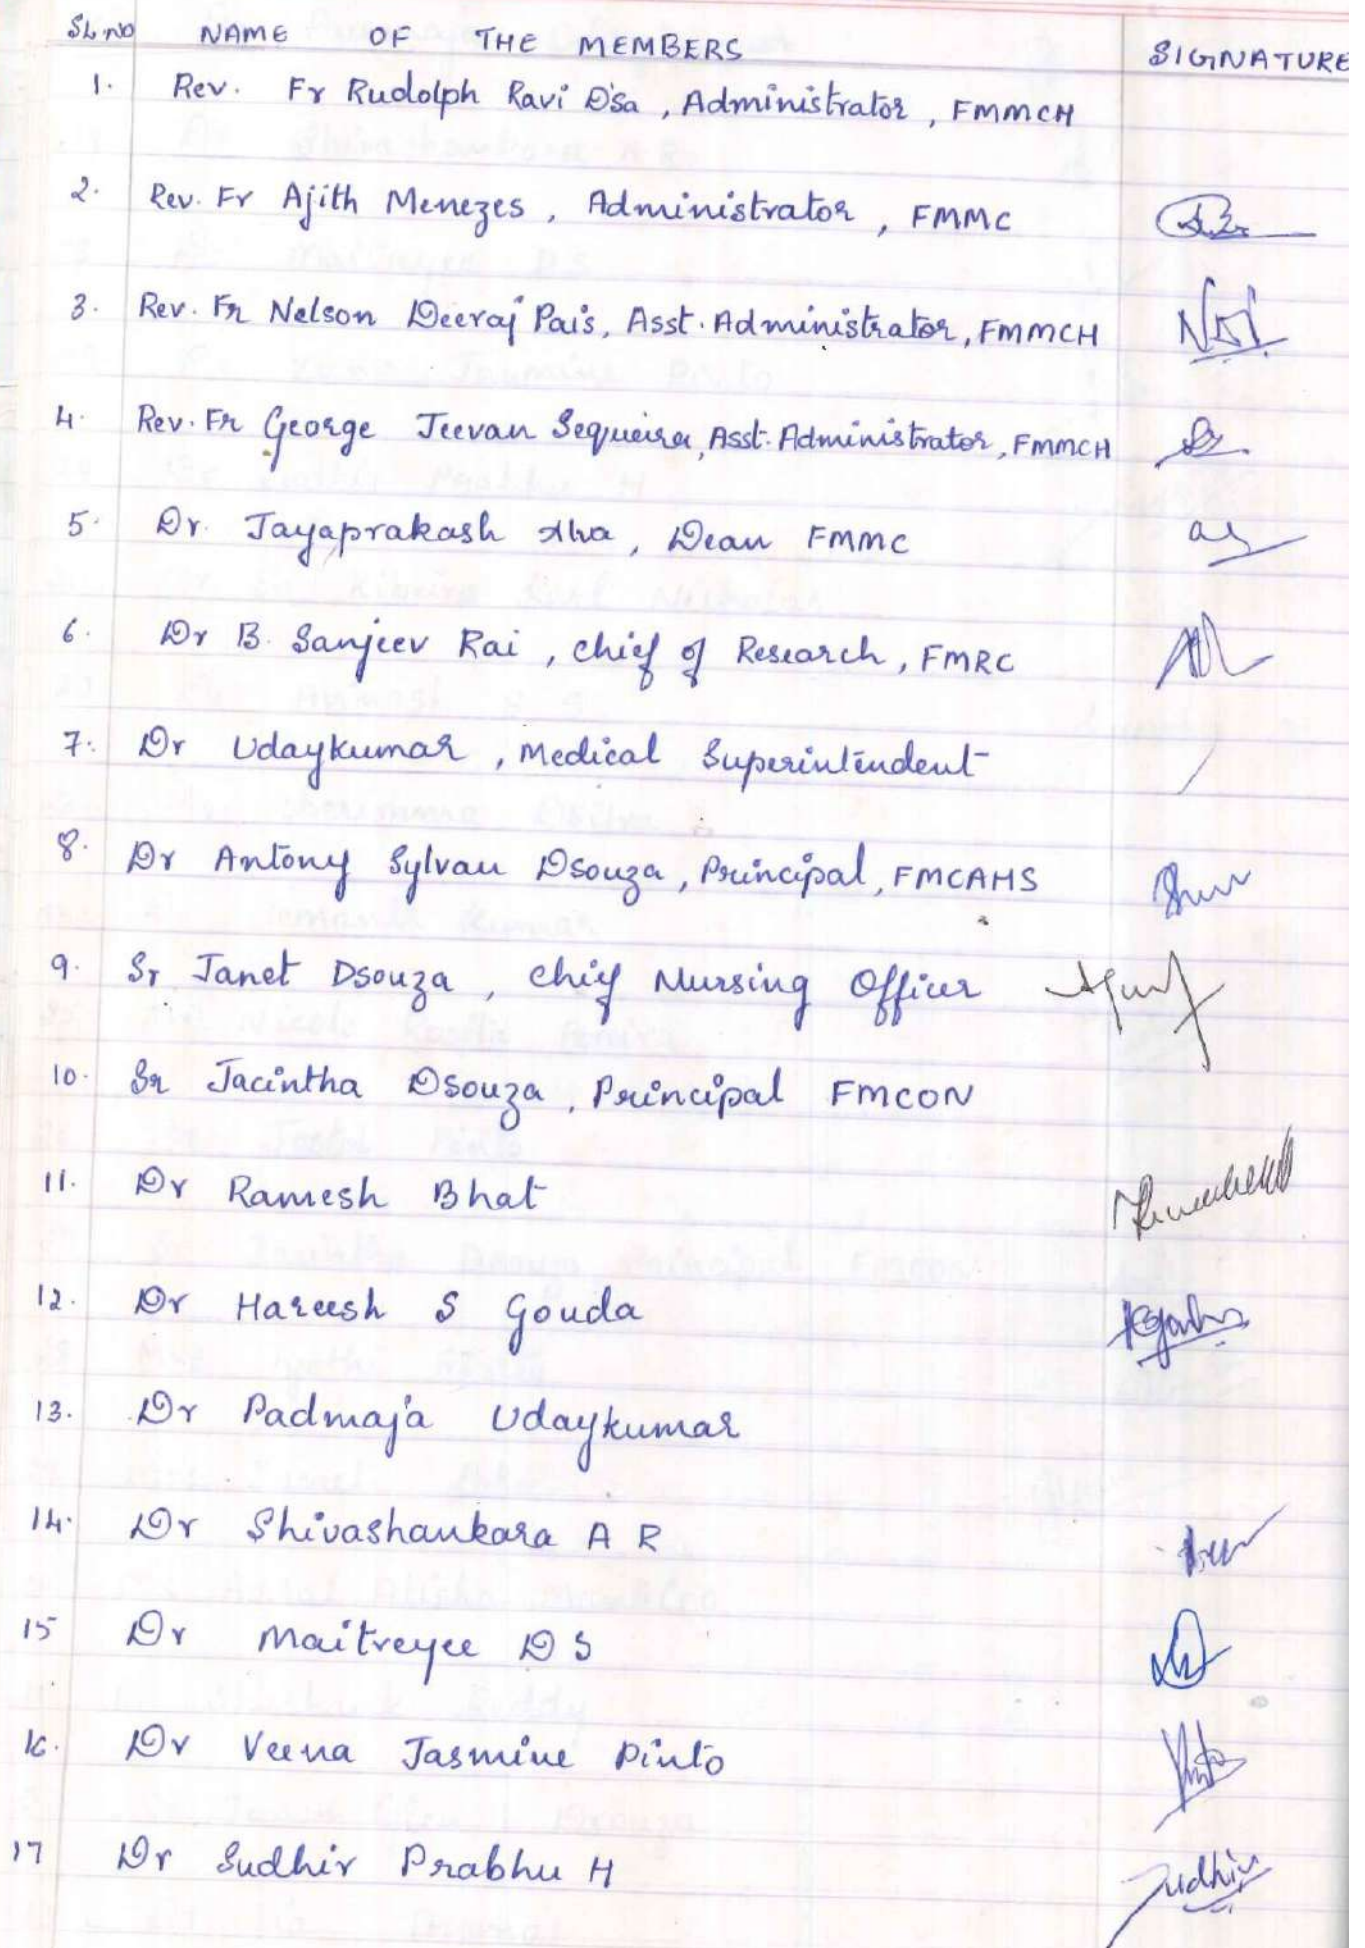 SL.NO NAME OF THE MEMBERS SIGNATURE
1. Rev. Fr Rudolph Ravi D'sa, Administrator, FMMCH
2. Rev. Fr Ajith Menezes, Administrator, FMMC
3. Rev. Fr Nelson Deeraj Pais, Asst. Administrator, FMMCH
4. Rev. Fr George Jeevan Sequeira, Asst. Administrator, FMMCH
5. Dr. Jayaprakash Alva, Dean FMMC
6. Dr B. Sanjeev Rai, chief of Research, FMRC
7. Dr Udaykumar, Medical Superintendent
8. Dr Antony Sylvan Dsouza, Principal, FMCAHS
9. Sr Janet Dsouza, chief Nursing Officer
10. Sr Jacintha Dsouza, Principal FMCON
11. Dr Ramesh Bhat
12. Dr Hareesh S Gouda
13. Dr Padmaja Udaykumar
14. Dr Shivashankara A R
15 Dr Maitreyee D S
16. Dr Veena Jasmine Pinto
17 Dr Sudhir Prabhu H Sudhir